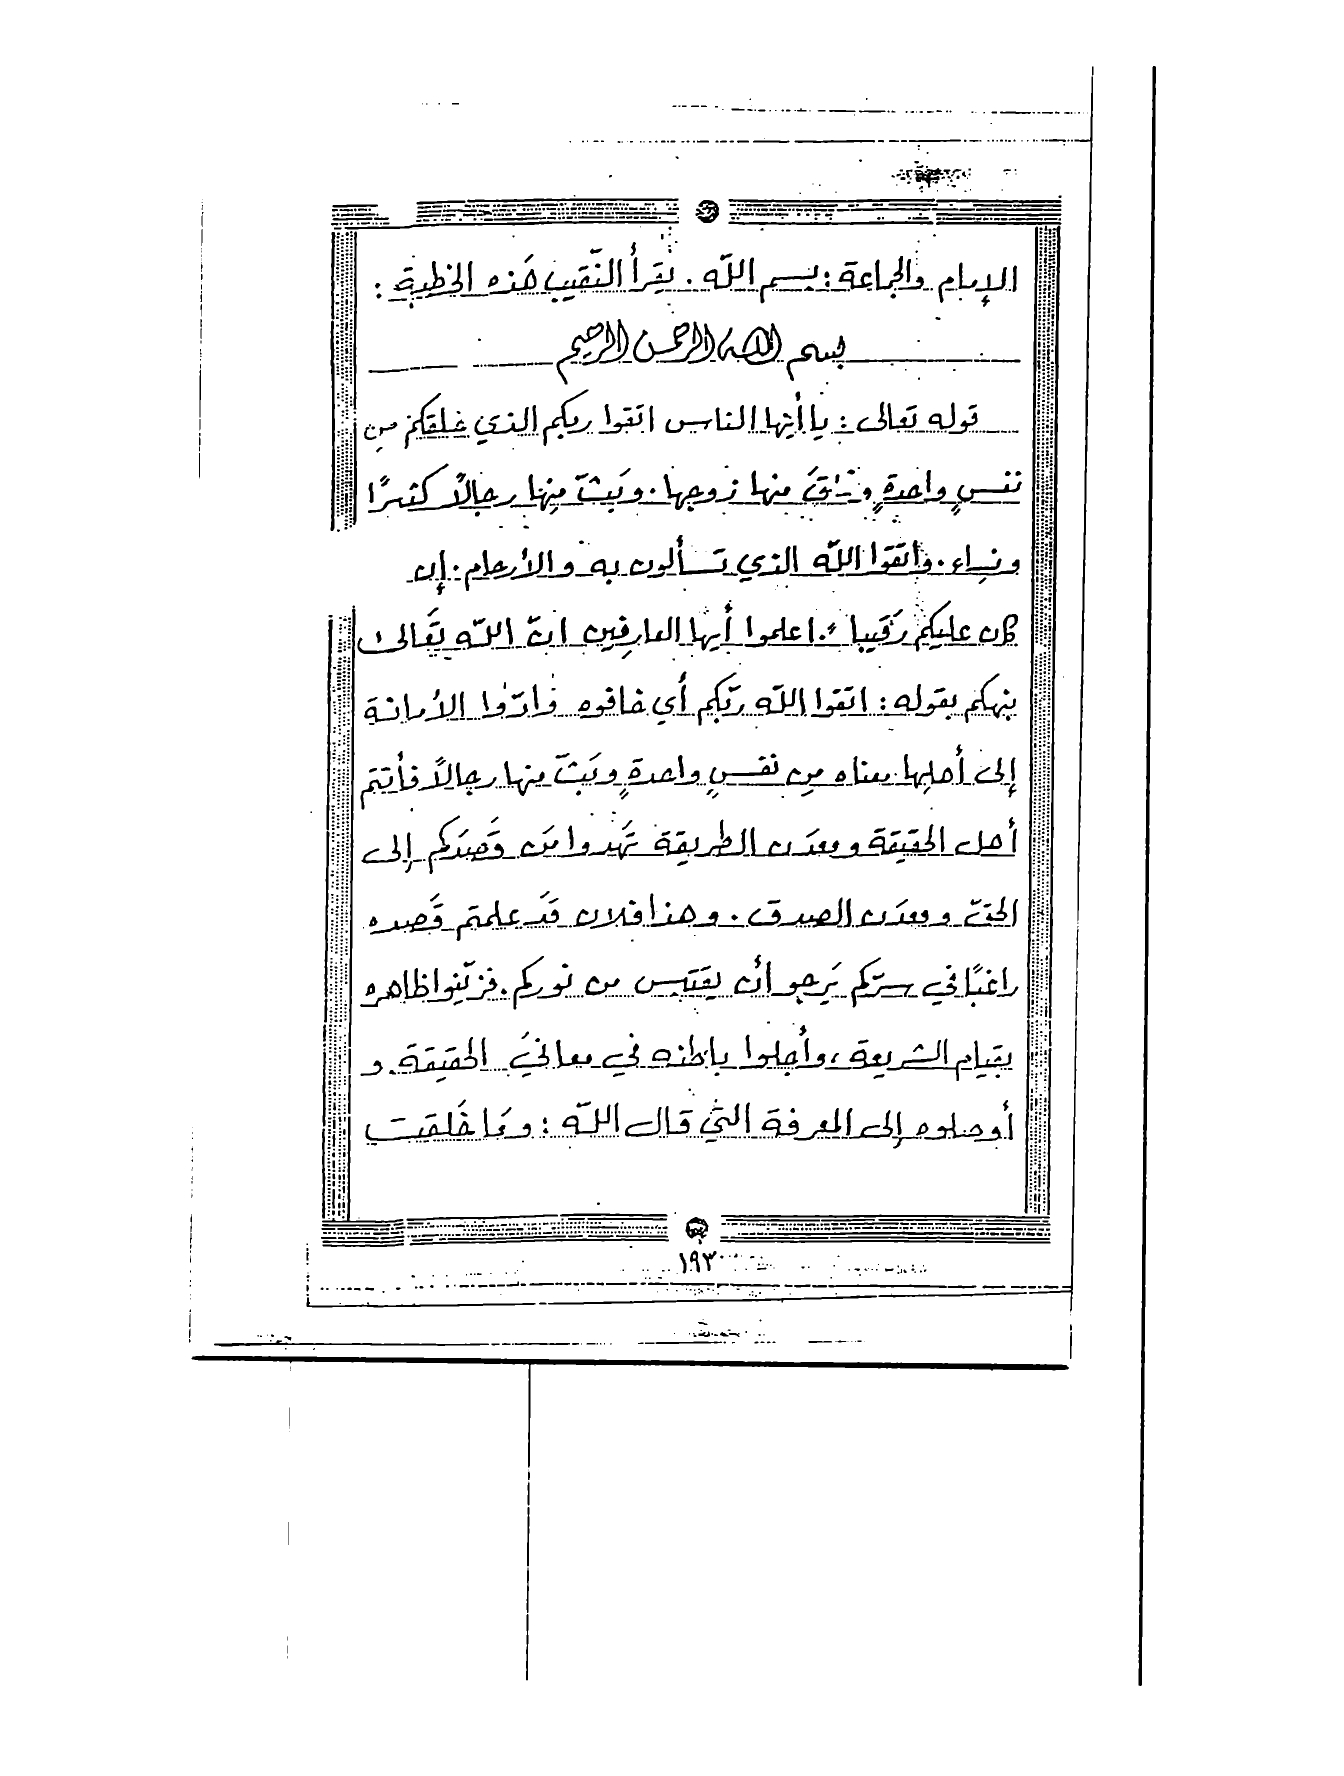 الإمام والجماعة : بسم اللّه . يقرأ النّقيب هَذه الخطبة :
بسم الله الرحمن الرحيم
قوله تعالى : يا أيّها الناس اتقوا ربكم الذي خلقكم من
نفسٍ واحدةٍ وخلقَ منها زوجها . وبَثّ مِنها رجالاً كثيرًا
ونساء . واتقوا اللّه الذي تسألون به والأرحام . إن
كان عليكم رَقيبا . اعلموا أيّها العارفين انّ اللّه تَعالى
ينهكم بقوله : اتقوا اللّه ربّكم أي خافوه وادّوا الأمانة
إلى أهلِها معناه مِن نفسٍ واحدةٍ وبَثّ منها رجالاً فأنتم
أهل الحقيقة ومعدَن الطريقة تَهدوا مَن قَصَدَكم إلى
الحقّ ومعدَن الصدق . وهذا فلان قَد علمتم قَصده
راغبًا في سرّكم يَرجو أن يقتَبس من نوركم . فزيّنوا ظاهره
بقيام الشريعة ، وأجلوا باطنه في معاني الحقيقة . و
أوصلوه إلى المعرفة التي قال اللّه : ومَا خَلقت
١٩٣